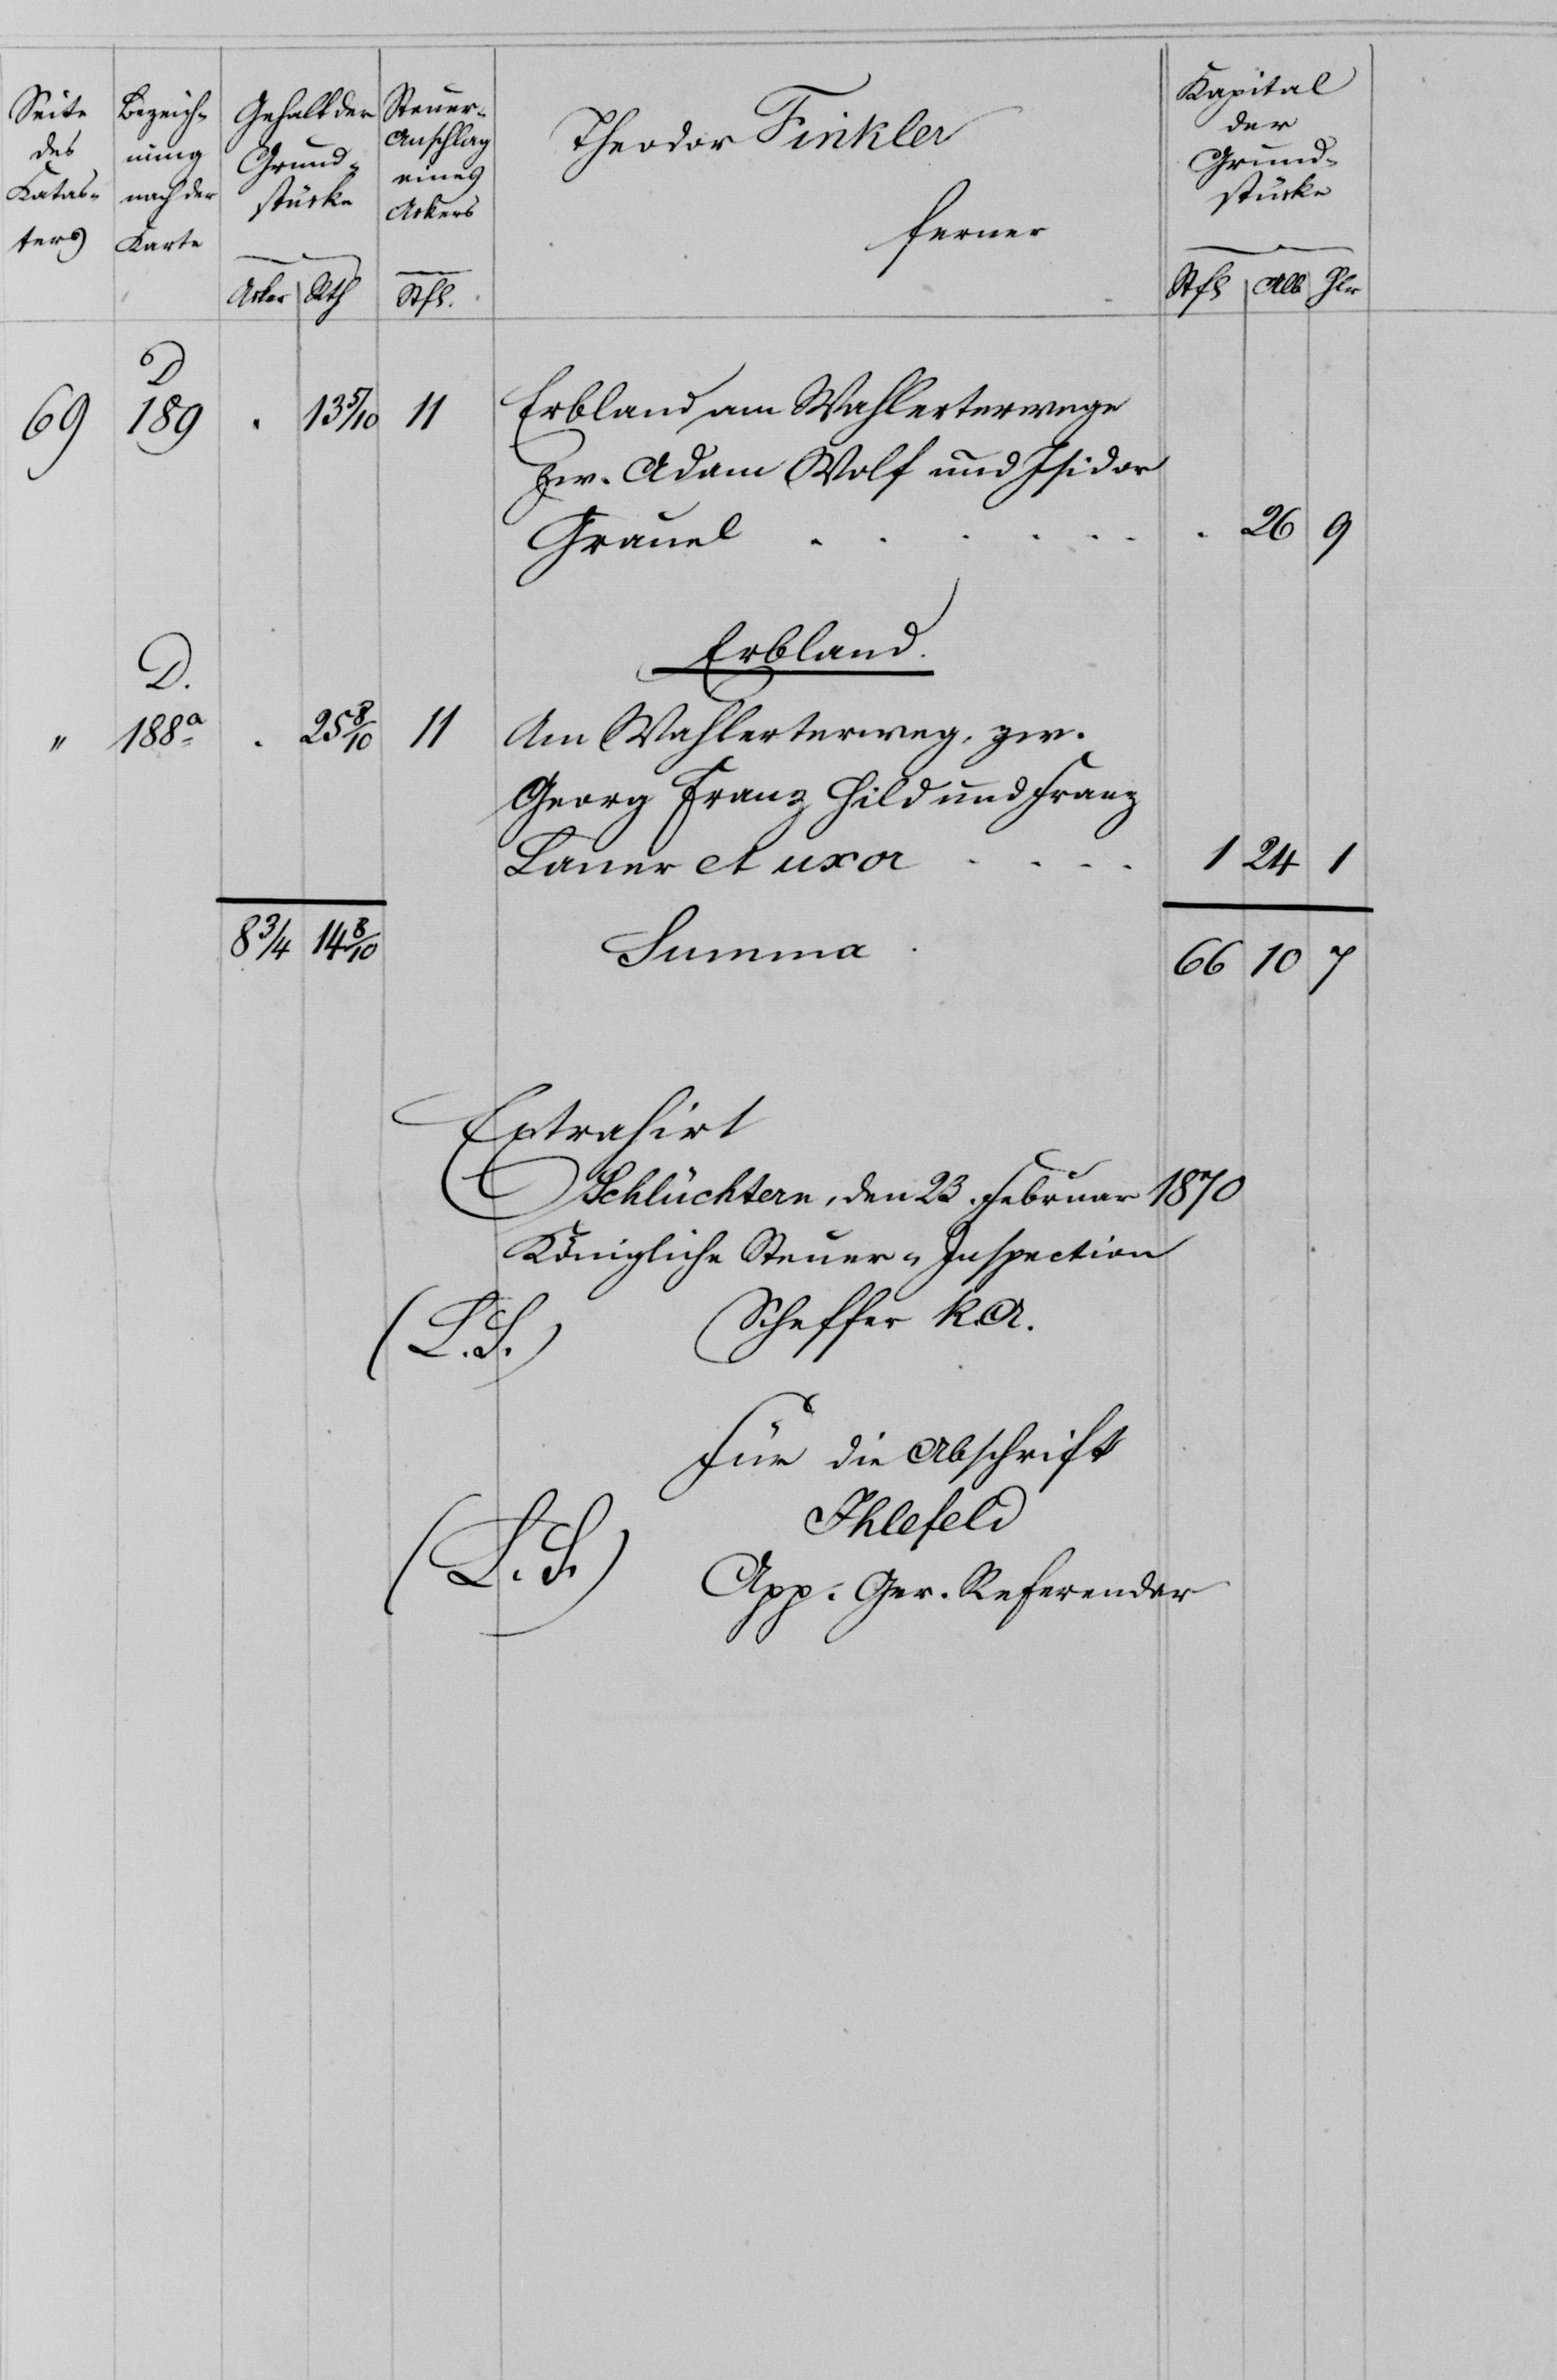 Seite des Katas- ters
Bezeich- nung nach der Karte
Gehalt der Grund- stücke
Steuer- Anschlag eines Ackers
Theodor Finkler
ferner
Kapital der Grund- stücke
Acker Rth Stfl. Stfl Alb Hlr
D
69 189 . 13 5/10 11 Erbland am Wahlerterwege
zw. Adam Wolf und Isidor
Grauel . . . . . . . 26 9
Erbland.
D.
" 188a . 25 8/10 11 Am Wahlerterweg, zw.
Georg Franz Hild und Franz
Lauer et uxor . . . . 1 24 1
8 3/4 14 8/10 Summa . 66 10 7
Extrahirt
Schlüchtern, den 23. Februar 1870
Königliche Steuer-Inspection
(L.S.) Scheffer
Für die Abschrift
Ihlefeld
(L.S.) App. Ger. Referendar